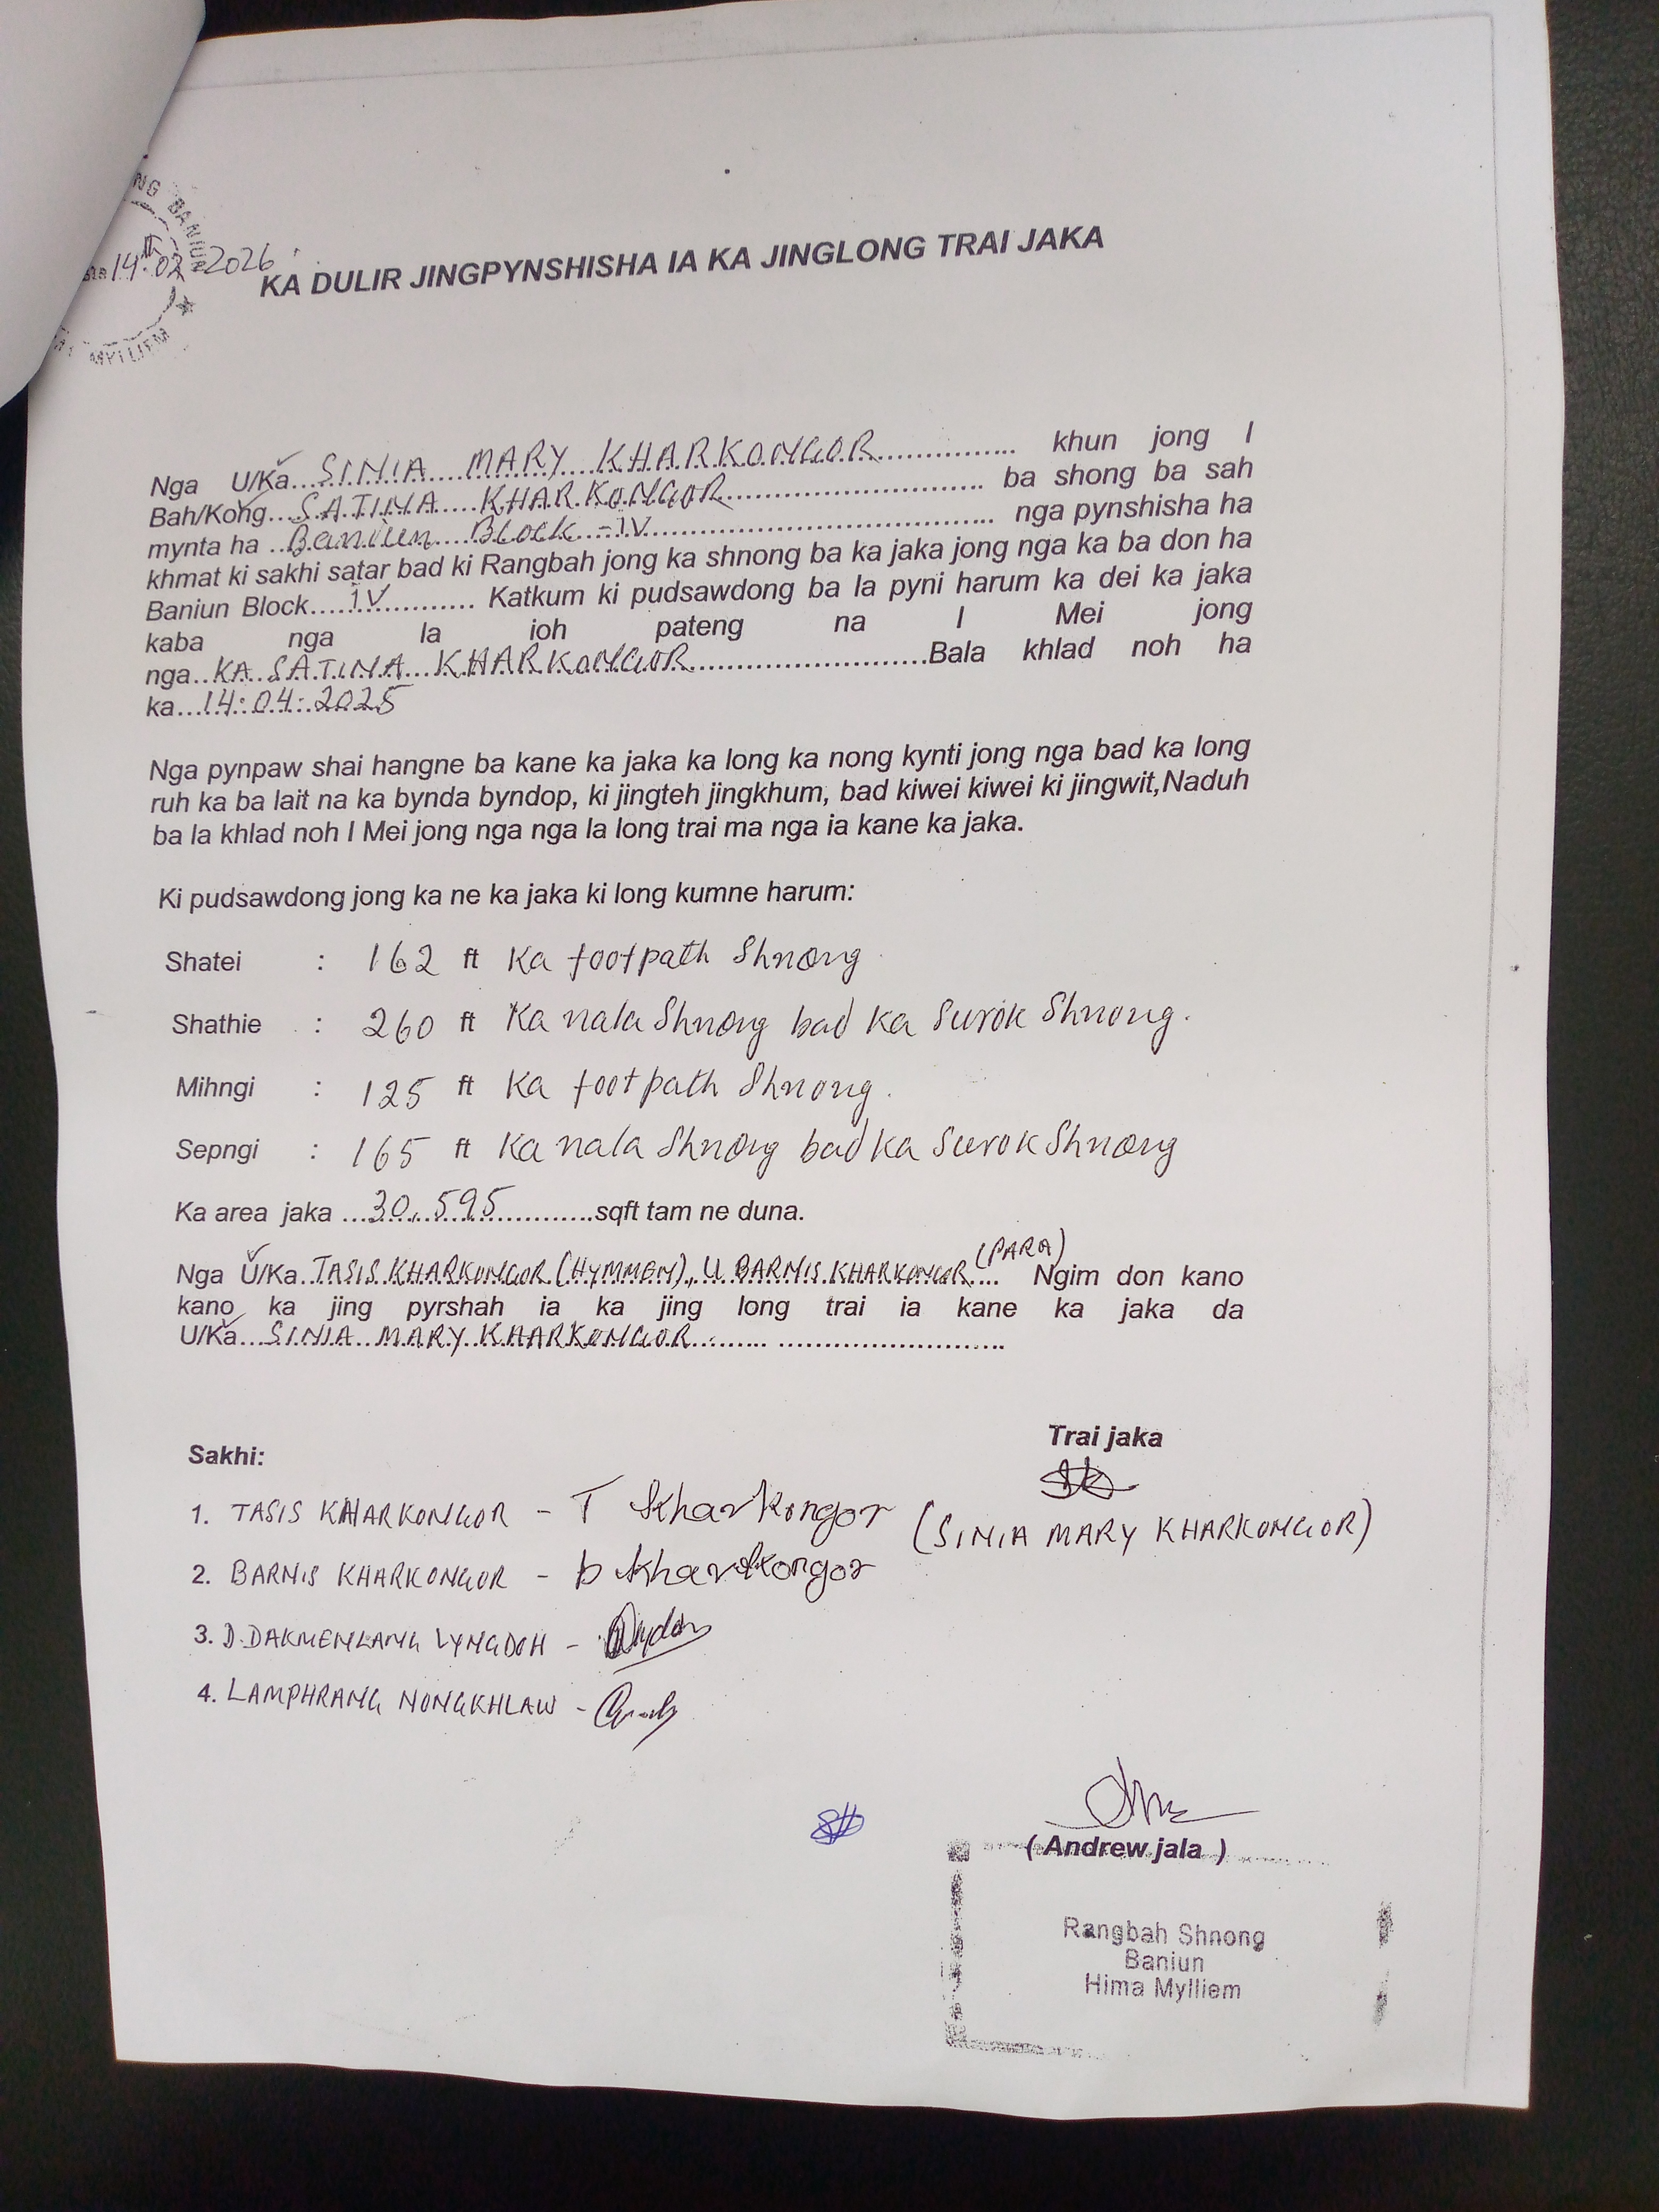 NG BANIUN
14.02.2026
MYLLIEM
KA DULIR JINGPYNSHISHA IA KA JINGLONG TRAI JAKA
Nga U/Ka...SINIA MARY KHARKONGOR............... khun jong I
Bah/Kong...SATINA KHARKONGOR.............................. ba shong ba sah
mynta ha ..Baniun Block-IV........................................ nga pynshisha ha
khmat ki sakhi satar bad ki Rangbah jong ka shnong ba ka jaka jong nga ka ba don ha
Baniun Block....IV............. Katkum ki pudsawdong ba la pyni harum ka dei ka jaka
kaba nga la ioh pateng na I Mei jong
nga..KA SATINA KHARKONGOR............................Bala khlad noh ha
ka...14:04:2025
Nga pynpaw shai hangne ba kane ka jaka ka long ka nong kynti jong nga bad ka long
ruh ka ba lait na ka bynda byndop, ki jingteh jingkhum, bad kiwei kiwei ki jingwit,Naduh
ba la khlad noh I Mei jong nga nga la long trai ma nga ia kane ka jaka.
Ki pudsawdong jong ka ne ka jaka ki long kumne harum:
Shatei : 162 ft Ka footpath Shnong
Shathie : 260 ft Ka nala Shnong bad ka Surok Shnong.
Mihngi : 125 ft Ka footpath Shnong.
Sepngi : 165 ft Ka nala Shnong bad ka Surok Shnong
Ka area jaka ...30,595..............sqft tam ne duna.
Nga U/Ka..TASIS KHARKONGOR (HYMMEN), U BARNIS KHARKONGOR (PARA).... Ngim don kano
kano ka jing pyrshah ia ka jing long trai ia kane ka jaka da
U/Ka...SINIA MARY KHARKONGOR......... ..........................
Trai jaka
Sakhi:
1. TASIS KHARKONGOR - T Kharkongor
(SINIA MARY KHARKONGOR)
2. BARNIS KHARKONGOR - b Kharkongor
3. D.DAKMENLANG LYNGDOH -
4. LAMPHRANG NONGKHLAW -
( Andrew jala )
Rangbah Shnong
Baniun
Hima Mylliem